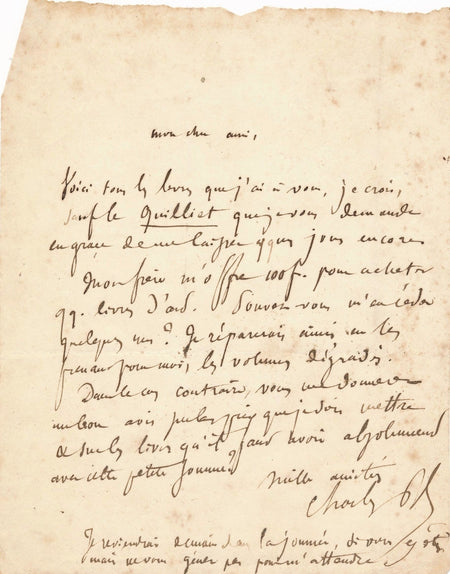 mon cher ami,
Voici tous les livres que j'ai à vous, je crois,
sauf le Quilliet que je vous demande
en grâce de me laisser qques jours encore
Mon frère m'offre 100f. pour acheter
qq. livres d'art. Pouvez-vous m'en céder
quelques uns? Je réparerais ainsi en les
prenant pour moi, les volumes dégradés.
Dans le cas contraire, vous me donnerez
un bon avis sur les prix que je dois mettre
& sur les livres qu'il faut avoir absolument
avec cette petite somme.
mille amitiés
Charles
Je reviendrai demain dans la journée, si vous y êtes
mais ne vous gênez pas pour m'attendre